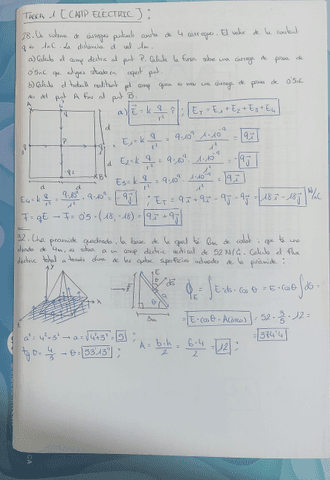 TASCA 1 [CAMP ELÈCTRIC]:
28. Un sistema de càrregues puntuals consta de 4 càrregues. El valor de la constant
q és 1nC. La distància d val 1m.
a) Calcula el camp elèctric al punt P. Calcula la força sobre una càrrega de prova de
0'5nC que estigués situada en aquest punt.
b) Calcula el treball realitzat pel camp quan es mou una càrrega de prova de 0'5nC
des del punt A fins al punt B.
A
d
a) E = k q/r² ? ; E_T = E₁ + E₂ + E₃ + E₄
E₁ = k q/r² = 9·10⁹ 1·10⁻⁹/1² = 9i
q P
E₂ = k q/r² = 9·10⁹ 1·10⁻⁹/1² = -9j
d
E₃ = k q/r² = 9·10⁹ 1·10⁻⁹/1² = 9i
B
d d
E₄ = k q/r² = -9j ; E_T = 9i + 9i - 9j - 9j = 18i - 18j N/C
F = qE → F = 0'5·(18, -18) = 9i + 9j
32. Una piràmide quadrada, la base de la qual té 6m de costat i que té una
altura de 4m, se situa a un camp elèctric vertical de 52 N/C. Calcula el flux
elèctric total a través de les quatre superfícies inclinades de la piràmide:
Φ_E = ∫ E·ds·cos θ = E·cos θ ∫ ds =
3m
= E·cosθ·A(àrea) = 52·3/5·12 =
= 374'4
a² = 4² + 3² → a = √4² + 3² = 5 ;
tg θ = 4/3 → θ = 53'13° ;
A = b·h/2 = 6·4/2 = 12 ;